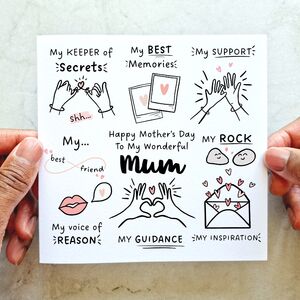 My KEEPER of
Secrets
shh...
My BEST
Memories
My SUPPORT
My...
best
friend
Happy Mother's Day
To My Wonderful
Mum
My ROCK
My voice of
REASON
MY GUIDANCE
MY INSPIRATION